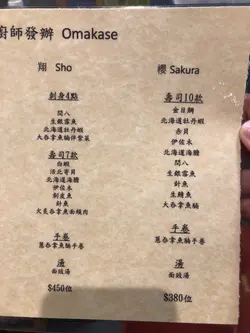 廚師發辦 Omakase
翔 Sho
刺身4點
間八
生銀雪魚
北海道牡丹蝦
大吞拿魚腩伴紫菜
壽司7款
白蝦
活北寄貝
北海道海膽
伊佐木
剝皮魚
針魚
大炙吞拿魚面頰肉
手卷
蔥吞拿魚腩手卷
湯
面豉湯
$450位
櫻 Sakura
壽司10款
金目鯛
北海道牡丹蝦
赤貝
伊佐木
北海道海膽
間八
生銀雪魚
針魚
生鯖魚
大吞拿魚腩
手卷
蔥吞拿魚腩手卷
湯
面豉湯
$380位